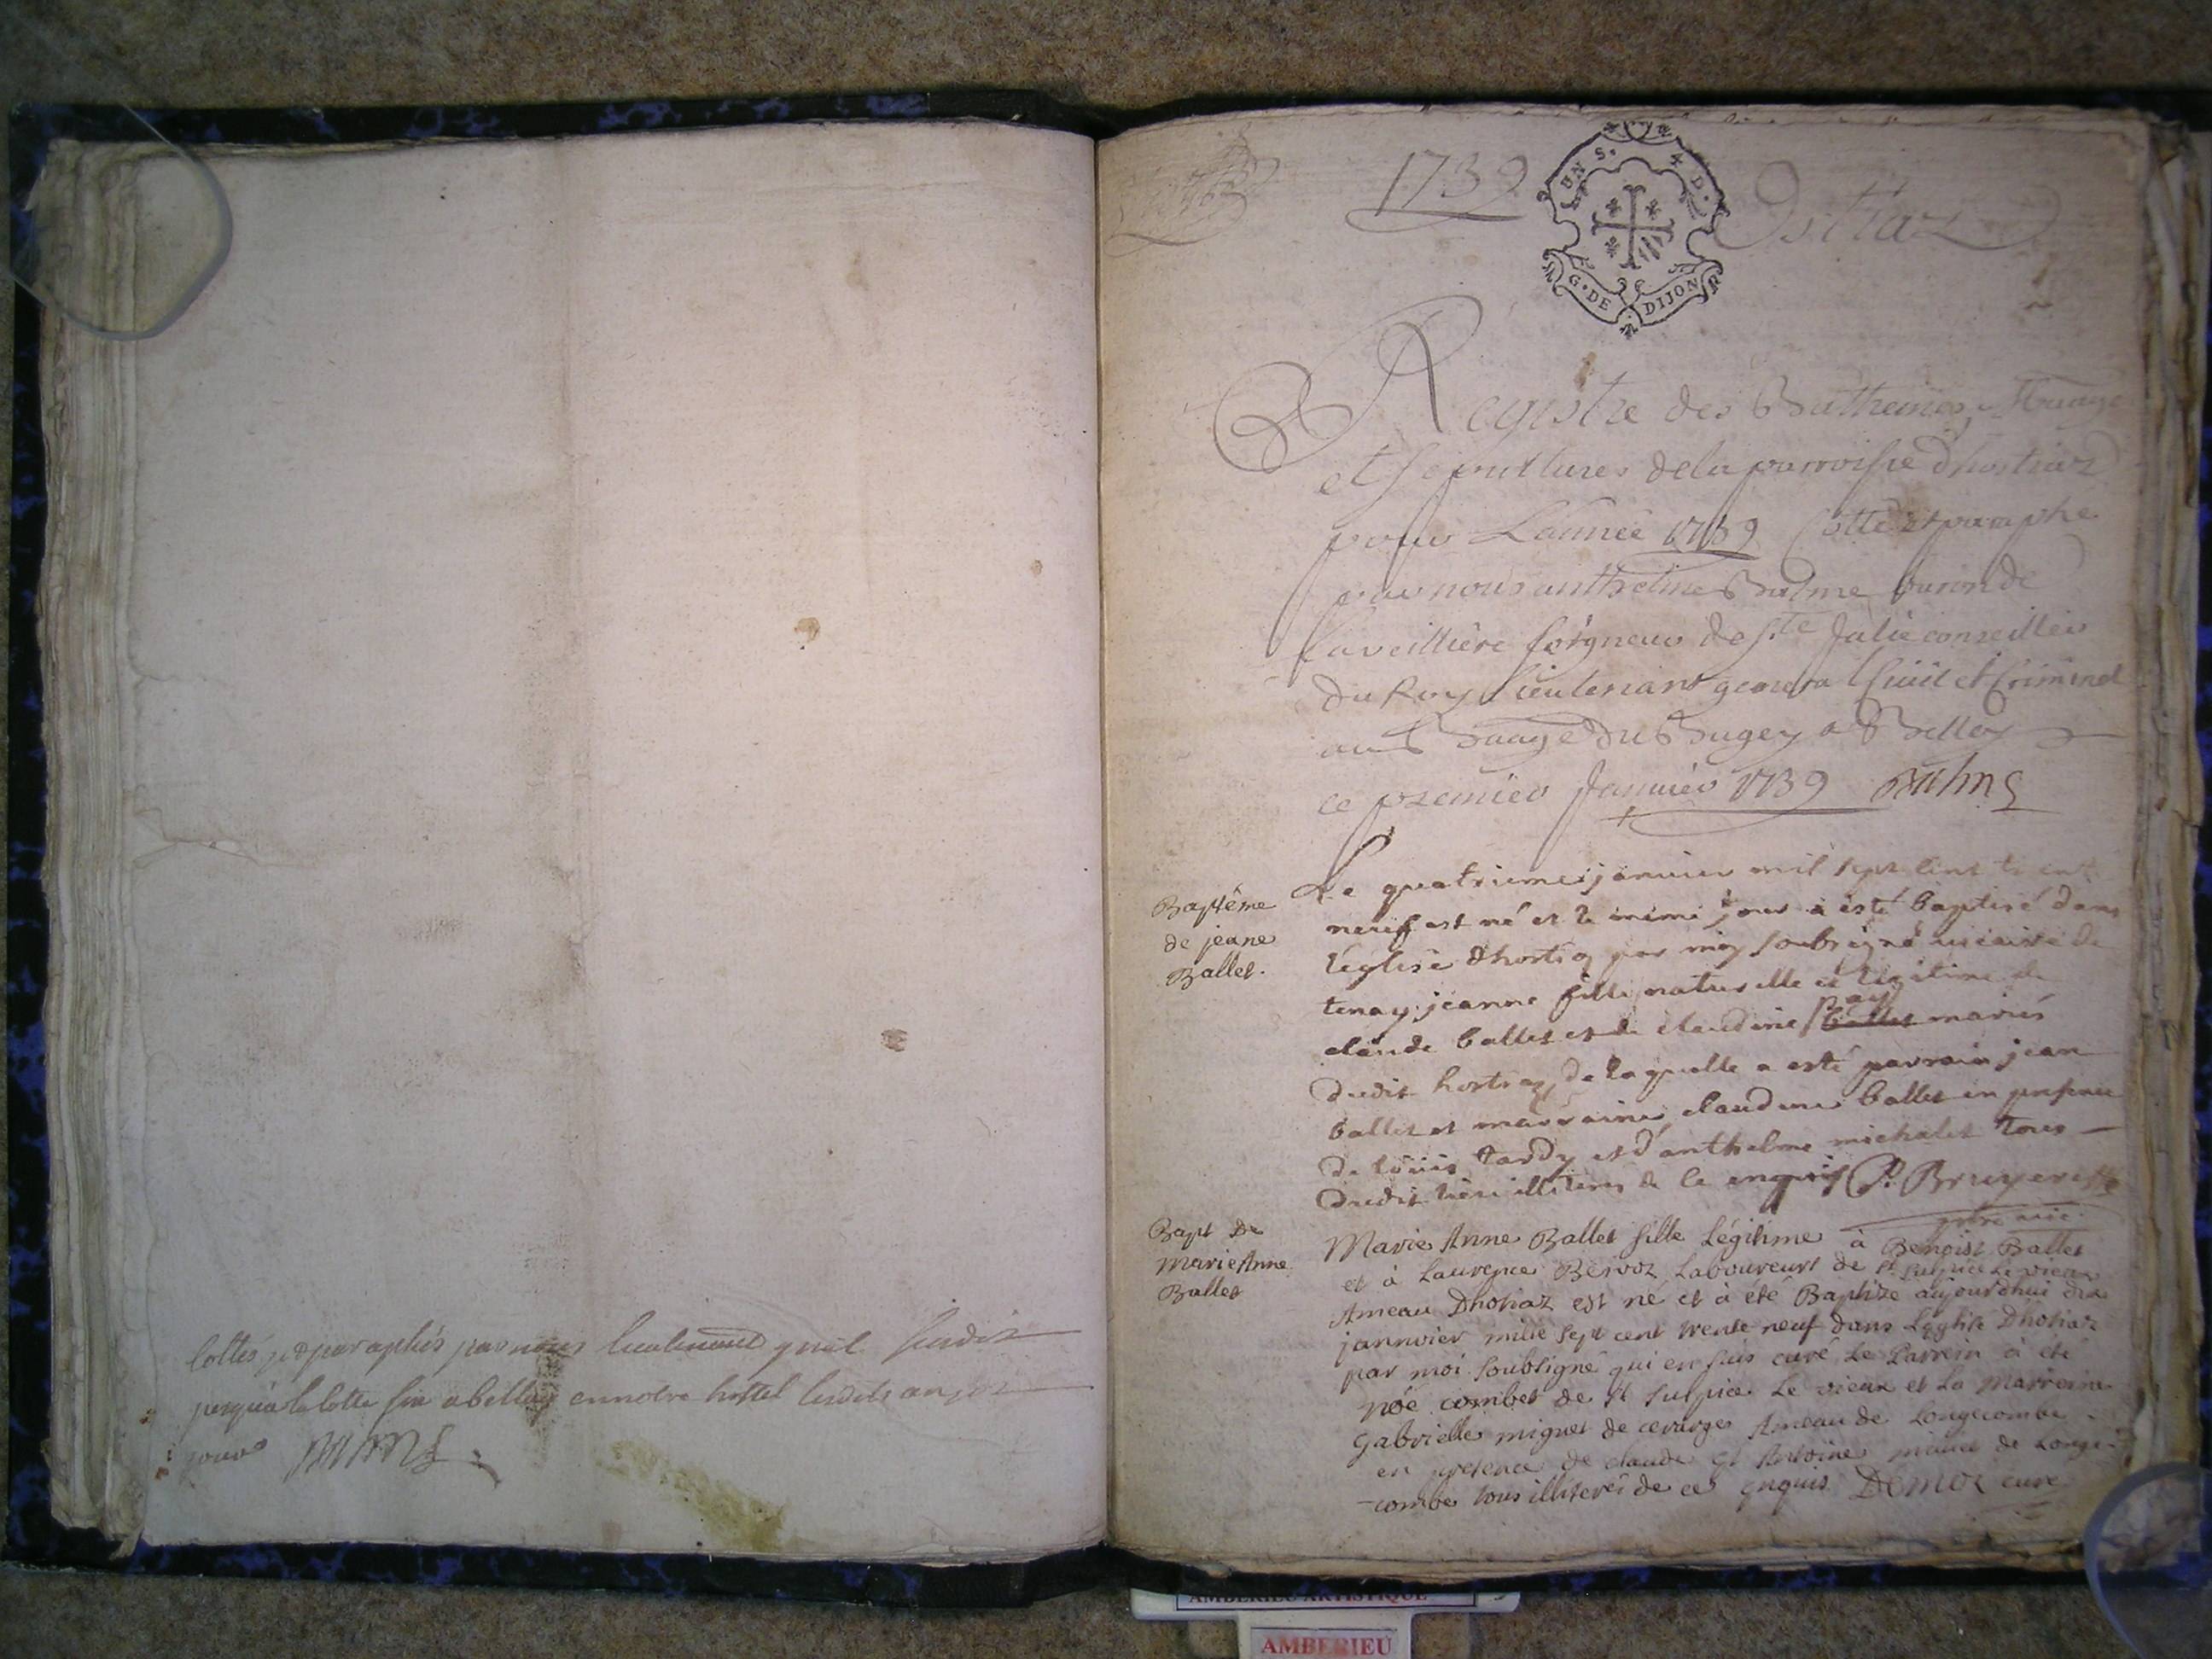 Cottés et paraphés par nous lieutenant gnâl susdit
jusqu'a la cotte six a belley en notre hostel lesdits an et
jour Balme
1739
Ostiaz
UN S. 4 D.
G. DE DIJON
Registre des Bathemes, Mariage
et Sepultures de la parroisse dhostiaz
pour Lannée 1739 Cotté et paraphé
par nous anthelme Balme baron de
seigneur de Ste Julie conseiller
du Roy Lieutenant general Civil et Criminel
au Baage du Bugey a Belley
ce premier Janvier 1739 Balme
Baptême
de jeane
Ballet.
Le quatrieme janvier mil sept cent trent
neuf est né et le mémé jour a esté baptisé dans
l'église dhostiaz par moy soubsigné vicaire de
tenay jeanne fille naturelle et légitime de
claude ballet et de claudine ballet mariés
dudit hostiaz de laquelle a esté parrain jean
ballet et marraine claudine ballet en presence
de loüis tardy et d'anthelme michalet tous
dudit lieu illiterés de ce enquis P. Bruyere
ptre vic.
Bapt De
Marie Anne
Ballet
Marie Anne Ballet fille Légitime à Benoist Ballet
et à Laurence Bervoz Laboureurs de St Sulpice Le vieux
Ameau Dhotiaz est ne et à été Baptize aujourdhui dix
jannvier mille sept cent trente neuf dans Légglise Dhotiaz
par moi soubsigné qui en suis curé Le Parrein à été
Noé combet de St Sulpice Le vieux et La Marreine
Gabrielle miguet de cevarges Ameau de Longecombe
en presence de claude et Antoine miguet de Longe-
-combe tous illiterés de ce enquis Demoz curé
AMBERIEU ARTISTIQUE
AMBERIEU